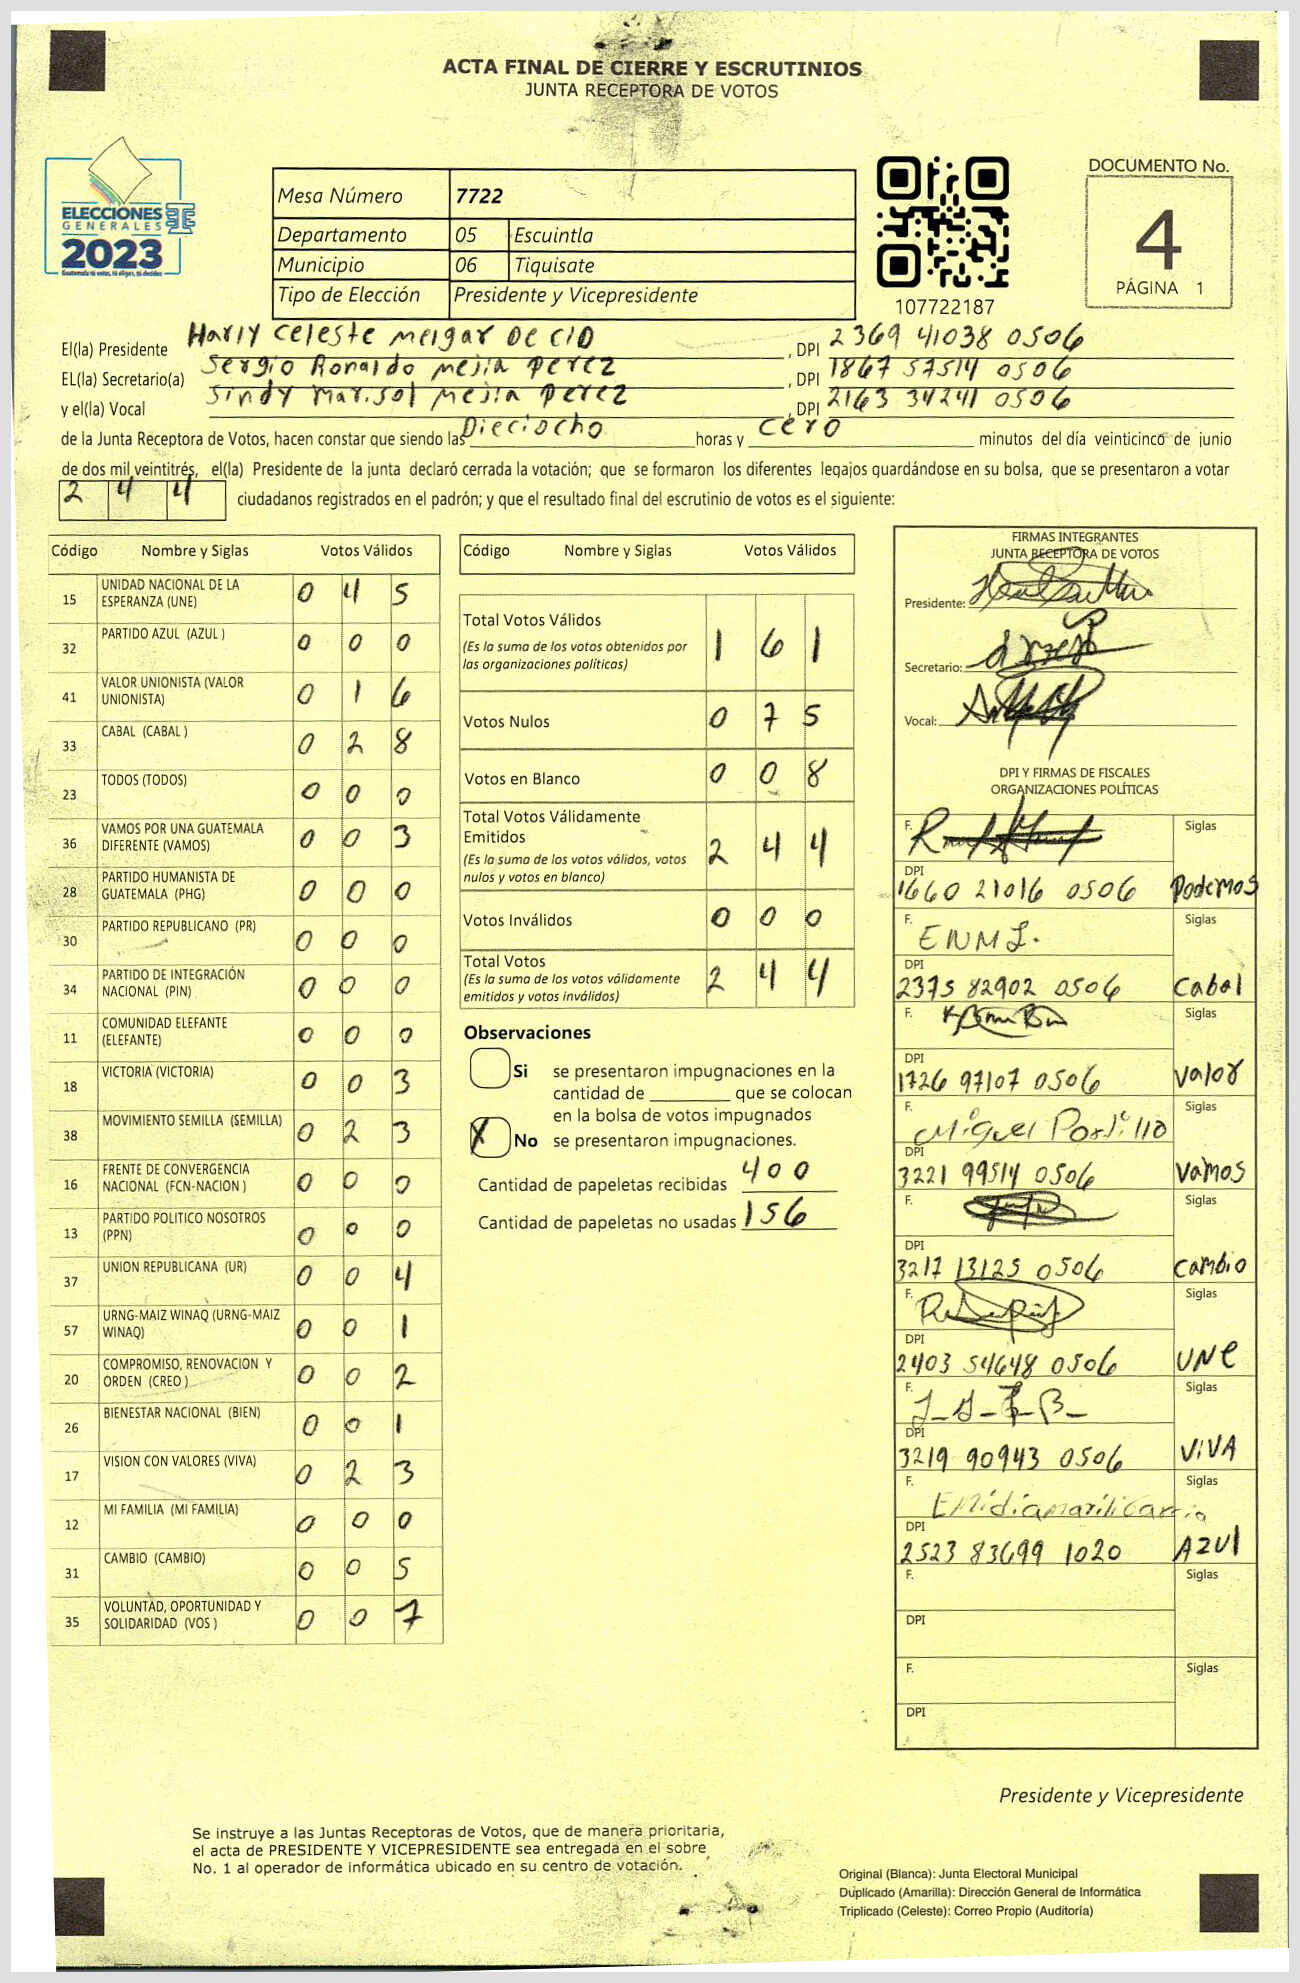 ACTA FINAL DE CIERRE Y ESCRUTINIOS
JUNTA RECEPTORA DE VOTOS
ELECCIONES
GENERALES
2023
Guatemala tú votas, tú eliges, tú decides
Mesa Número 7722
Departamento 05 Escuintla
Municipio 06 Tiquisate
Tipo de Elección Presidente y Vicepresidente
107722187
DOCUMENTO No.
4
PÁGINA 1
El(la) Presidente Harly Celeste Melgar De Cid , DPI 2369 41038 0506
EL(la) Secretario(a) Sergio Ronaldo Mejia Perez , DPI 1867 57514 0506
y el(la) Vocal Sindy Marisol Mejia Perez , DPI 2163 34241 0506
de la Junta Receptora de Votos, hacen constar que siendo las Dieciocho horas y cero minutos del día veinticinco de junio
de dos mil veintitrés, el(la) Presidente de la junta declaró cerrada la votación; que se formaron los diferentes legajos guardándose en su bolsa, que se presentaron a votar
2 4 4 ciudadanos registrados en el padrón; y que el resultado final del escrutinio de votos es el siguiente:
Código Nombre y Siglas Votos Válidos
15 UNIDAD NACIONAL DE LA ESPERANZA (UNE) 0 4 5
32 PARTIDO AZUL (AZUL ) 0 0 0
41 VALOR UNIONISTA (VALOR UNIONISTA) 0 1 6
33 CABAL (CABAL ) 0 2 8
23 TODOS (TODOS) 0 0 0
36 VAMOS POR UNA GUATEMALA DIFERENTE (VAMOS) 0 0 3
28 PARTIDO HUMANISTA DE GUATEMALA (PHG) 0 0 0
30 PARTIDO REPUBLICANO (PR) 0 0 0
34 PARTIDO DE INTEGRACIÓN NACIONAL (PIN) 0 0 0
11 COMUNIDAD ELEFANTE (ELEFANTE) 0 0 0
18 VICTORIA (VICTORIA) 0 0 3
38 MOVIMIENTO SEMILLA (SEMILLA) 0 2 3
16 FRENTE DE CONVERGENCIA NACIONAL (FCN-NACION ) 0 0 0
13 PARTIDO POLITICO NOSOTROS (PPN) 0 0 0
37 UNION REPUBLICANA (UR) 0 0 4
57 URNG-MAIZ WINAQ (URNG-MAIZ WINAQ) 0 0 1
20 COMPROMISO, RENOVACION Y ORDEN (CREO ) 0 0 2
26 BIENESTAR NACIONAL (BIEN) 0 0 1
17 VISION CON VALORES (VIVA) 0 2 3
12 MI FAMILIA (MI FAMILIA) 0 0 0
31 CAMBIO (CAMBIO) 0 0 5
35 VOLUNTAD, OPORTUNIDAD Y SOLIDARIDAD (VOS ) 0 0 7
Código Nombre y Siglas Votos Válidos
Total Votos Válidos 1 6 1
(Es la suma de los votos obtenidos por
las organizaciones políticas)
Votos Nulos 0 7 5
Votos en Blanco 0 0 8
Total Votos Válidamente
Emitidos 2 4 4
(Es la suma de los votos válidos, votos
nulos y votos en blanco)
Votos Inválidos 0 0 0
Total Votos 2 4 4
(Es la suma de los votos válidamente
emitidos y votos inválidos)
Observaciones
Si se presentaron impugnaciones en la
cantidad de ________ que se colocan
en la bolsa de votos impugnados
X No se presentaron impugnaciones.
Cantidad de papeletas recibidas 400
Cantidad de papeletas no usadas 156
FIRMAS INTEGRANTES
JUNTA RECEPTORA DE VOTOS
Presidente:
Secretario:
Vocal:
DPI Y FIRMAS DE FISCALES
ORGANIZACIONES POLÍTICAS
F. Siglas
DPI
1660 21016 0506 Podemos
F. ENML. Siglas
DPI
2375 82902 0506 Cabal
F. Siglas
DPI
1726 97107 0506 Valor
F. Miguel Portillo Siglas
DPI
3221 99514 0506 Vamos
F. Siglas
DPI
3217 13125 0506 Cambio
F. Siglas
DPI
2403 54648 0506 UNE
F. Siglas
DPI
3219 90943 0506 VIVA
F. Siglas
DPI
2523 83699 1020 AZUl
F. Siglas
DPI
F. Siglas
DPI
Presidente y Vicepresidente
Se instruye a las Juntas Receptoras de Votos, que de manera prioritaria,
el acta de PRESIDENTE Y VICEPRESIDENTE sea entregada en el sobre
No. 1 al operador de informática ubicado en su centro de votación.
Original (Blanca): Junta Electoral Municipal
Duplicado (Amarilla): Dirección General de Informática
Triplicado (Celeste): Correo Propio (Auditoría)